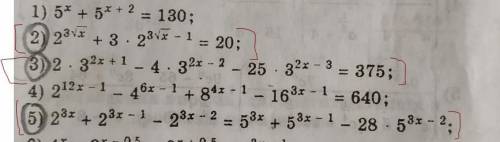 1) 5^x + 5^{x + 2} = 130;
2) 2^{3√x} + 3 · 2^{3√x − 1} = 20;
3) 2 · 3^{2x + 1} − 4 · 3^{2x − 2} − 25 · 3^{2x − 3} = 375;
4) 2^{12x − 1} − 4^{6x − 1} + 8^{4x − 1} − 16^{3x − 1} = 640;
5) 2^{3x} + 2^{3x − 1} − 2^{3x − 2} = 5^{3x} + 5^{3x − 1} − 28 · 5^{3x − 2};